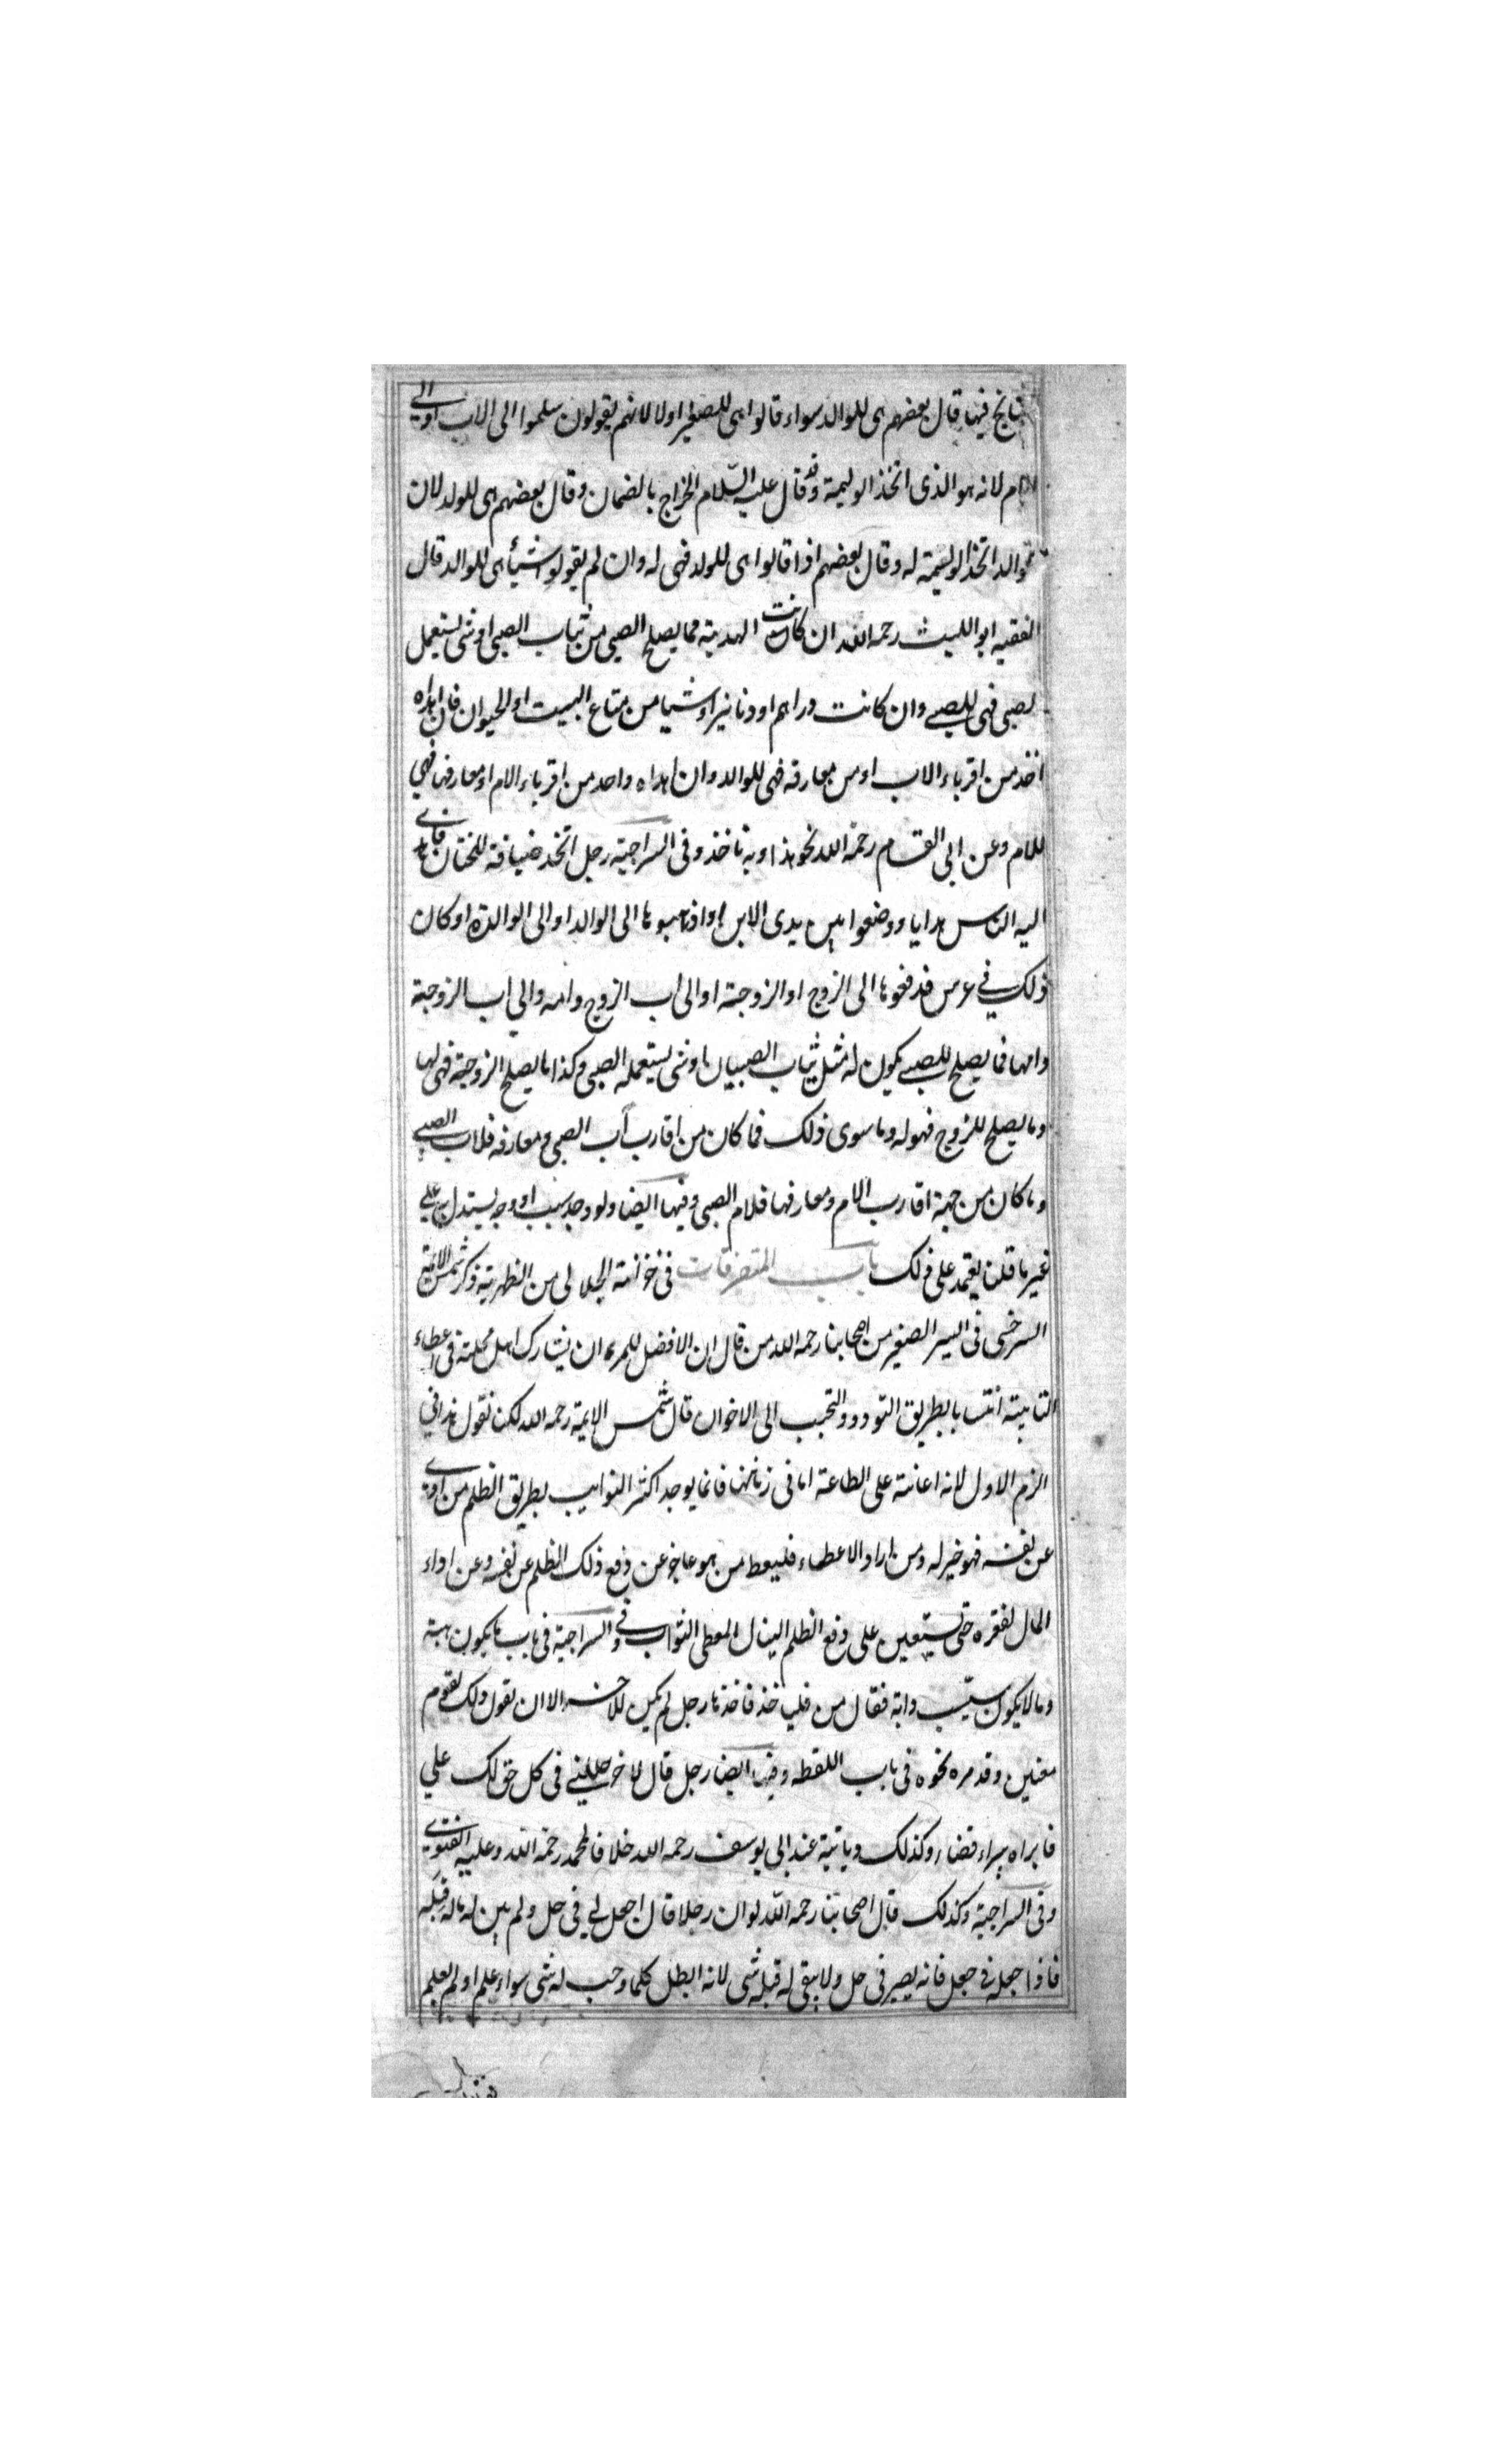 فيها قال بعضهم هى للوالد سواء قالوا هى للصغير اولا لانهم يقولون سلموا الى الاب او الى
الام لانه هو الذى اتخذ الوليمة وقد قال عليه السّلام الخراج بالضمان وقال بعضهم هى للولد لان
الوالد اتخذ الوليمة له وقال بعضهم اذا قالوا هى للولد فهى له وان لم يقولوا شيأ هى للوالد قال
الفقيه ابو الليث رحمه الله ان كانت الهدية مما يصلح الصبى من ثياب الصبى او شى يستعمل
لصبى فهى للصبي وان كانت دراهم او دنانير او شيا من متاع البيت او الحيوان فان اهداه
اخذ من اقرباء الاب او من معارفه فهى للوالد وان اهداه واحد من اقرباء الام او معارفها فهي
للام وعن ابى القسام رحمة الله نحو هذا وبه ناخذ وفى السراجية رجل اتخذ ضيافة للختان فاهدى
اليه الناس هدايا ووضعوا بين يدى الابن او اذهبوها الى الوالد او الى الوالدة او كان
ذلك في عرس فدفعوها الى الزوج او الزوجة او الى اب الزوج وامه والي اب الزوجة
وامها فما يصلح للصبي يكون له مثل ثياب الصبيان او شى يستعمله الصبى وكذا ما يصلح الزوجة فهى لها
وما يصلح للزوج فهو له وما سوى ذلك فما كان من اقارب آب الصبى ومعارفه فلاب الصبي
وما كان من جهة اقارب الام ومعارفها فلام الصبى وفيها ايضا ولو وجد سبب او وجه يستدل به علي
غير ما قلنا يعتمد على ذلك باب المتفرقات فى خزانة الجلالى من الظهرية ذكر شمس الائمة
السرخسى فى السير الصغير من اصحابنا رحمه الله من قال ان الافضل للمرء ان يشارك اهل محلته فى اعطاء
النائبة بالطريق التودد والتحبب الى الاخوان قال شمس الايمة رحمه الله لكن نقول هذا في
الزم الاول لانه اعانة على الطاعة اما فى زماننا فانما يوجد اكثر النوايب بطريق الظلم من
عن نفسه فهو خير له ومن اراد الاعطاء فليعط من هو عاجز عن دفع ذلك الظلم عن نفسه وعن اداء
المال لفقره حتى يستعين على دفع الظلم لينال المعطى الثواب وفى السراجية فى باب ما يكون هبة
وما لا يكون سيّب دابة فقال من فلياخذ فاخذها رجل لم يكن للاخذ الا ان يقول ذلك لقوم
معنين وقد مره نحوه فى باب اللقطه وفيها ايضا رجل قال لاخر حللني فى كل حق لك علي
فابراه يبراء قضاء وكذلك ديانية عند ابى يوسف رحمه الله خلافا لمحمد رحمة الله وعليه الفتوى
وفى السراجية وكذلك قال اصحابنا رحمه اللّه لو ان رجلا قال اجعل لي فى حل ولم يبن له ماله قبله
فاذا جعله فى جعل فانه يصير فى حل ولا يبقى له قبله شى لانه ابطل كلما وجب له شى سواء علم او لم يعلم